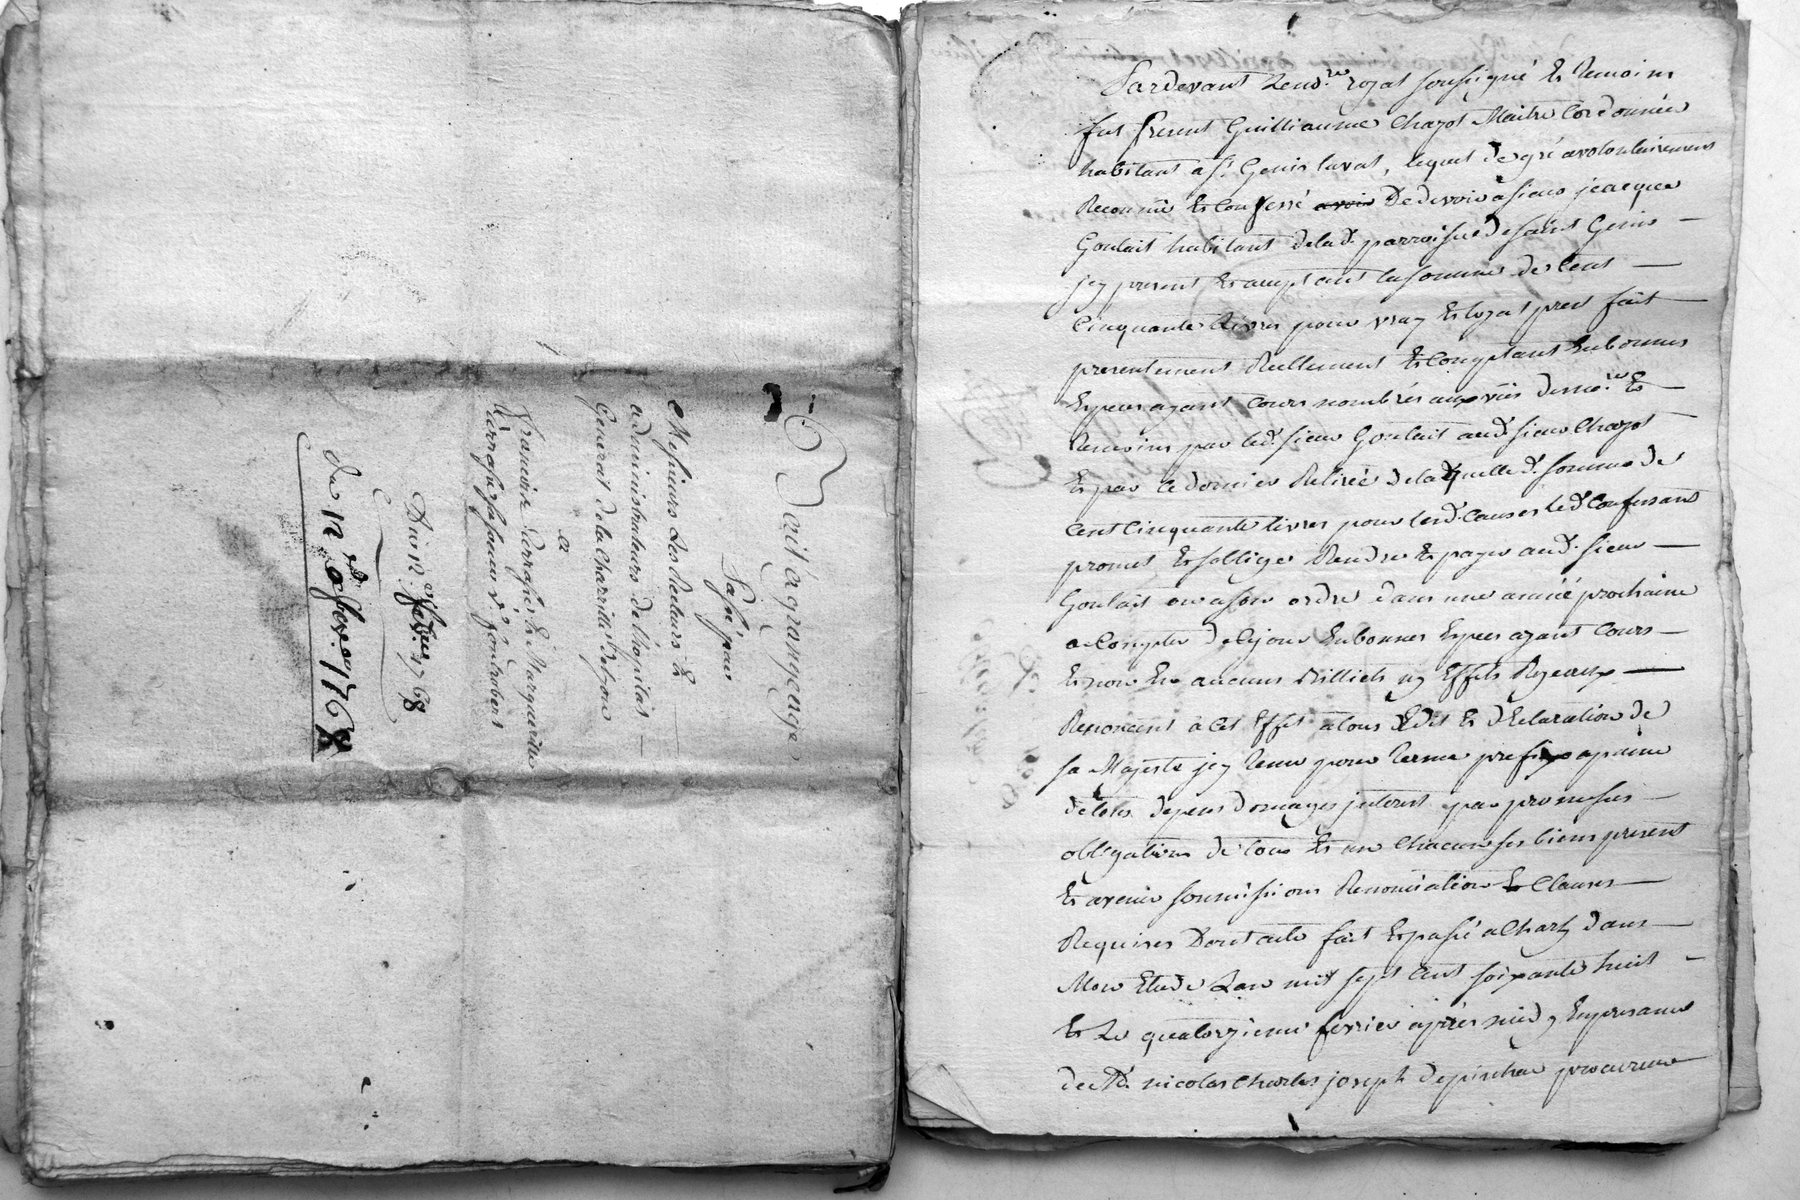 Bail à grangeage
Passé par
Messieurs Les Recteurs Et
administrateurs de l'hopital
General de la Charité de Lyon
a
Francois Et Marguerite
Du 12 fevrier 1768
du 12 fevr. 1768
Pardevant Le no.re royal soussigné Et temoins
fut present Guilliaume Chazot Maitre Cordonnier
habitant a St Genis laval, lequel de gré a volontairement
Reconnu Et Confessé avoir De devoir a sieur jeacque
Goulait habitant de la de parroisse de saint Genis
jcy present Et acceptant la somme de Cent
Cinquante Livres pour vray Et loyal prest fait
presentement Reellement Et Comptant En bonnes
Especes ayant Cours nombrés aux vües du no.re Et
temoins par led. sieur Goulait aud. sieur Chazot
Et par Ce dernier Retirée de la quelle d. somme de
Cent Cinquante livres pour lesd. Causes led. Confessant
promet Et s'obllige Rendre Et payer aud. sieur
Goulait ou a son ordre dans une année prochaine
a Compter de Ce jour En bonnes Especes ayant Cours
Et non En aucuns Billiets ny Effets Royeaux
Renoncent a Cet Effet a tous Edit Et déclaration de
sa Majesté jcy tenu pour terme prefix a paine
de tous depens domages jnterest par promesses
obligation de tous Et un Chacun ses biens present
Et avenir soumissions Renonciation Et Clauses
Requises Dont acte fait Et passé a Charly dans
Mon Etude L'an mil sept Cent soixante huit
Et Le quatorzieme fevrier après midy En presance
de Me. nicolas Charles joseph procureur